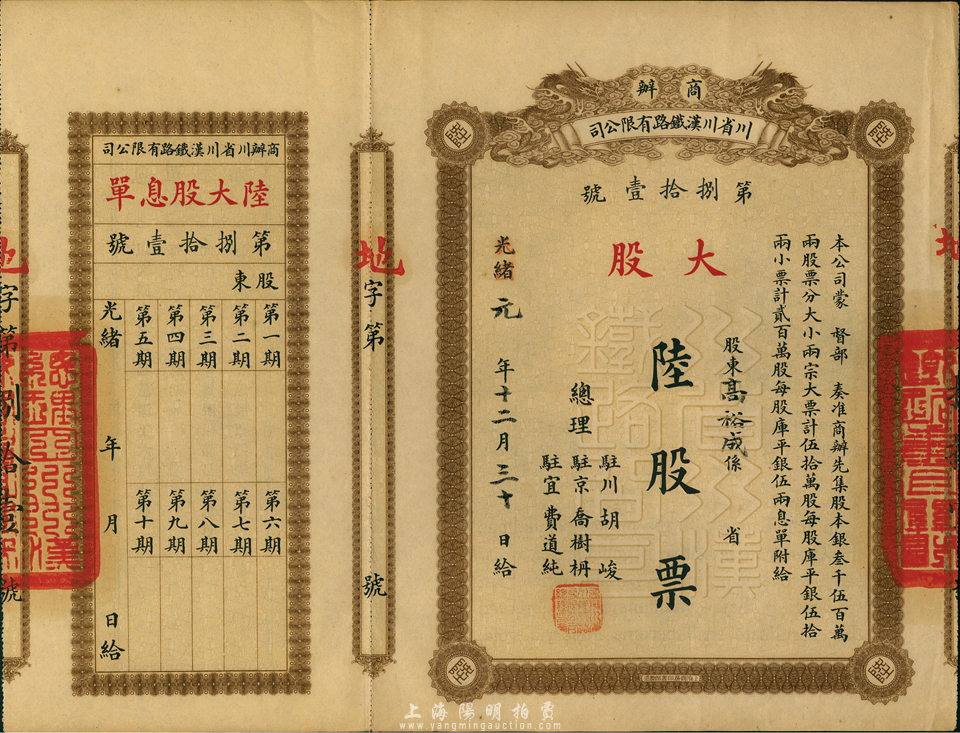 商辦
川省川漢鐵路有限公司
第捌拾壹號
大股
本公司蒙 督部 奏准商辦先集股本銀叁千伍百萬
兩股票分大小兩宗大票計伍拾萬股每股庫平銀伍拾
兩小票計貳百萬股每股庫平銀伍兩息單附給
股東高裕成係 省
陸股票
駐川胡峻
總理 駐京喬樹枬
駐宜費道純
光緒元年十二月三十日給
陸
陸
陸
陸
川省川漢
鐵路公司
地字第 號
商辦川省川漢鐵路有限公司
陸大股息單
第捌拾壹號
股東
第一期
第二期
第三期
第四期
第五期
第六期
第七期
第八期
第九期
第十期
光緒 年 月 日給
地字第捌拾壹號
上海陽明拍賣
www.yangmingauction.com